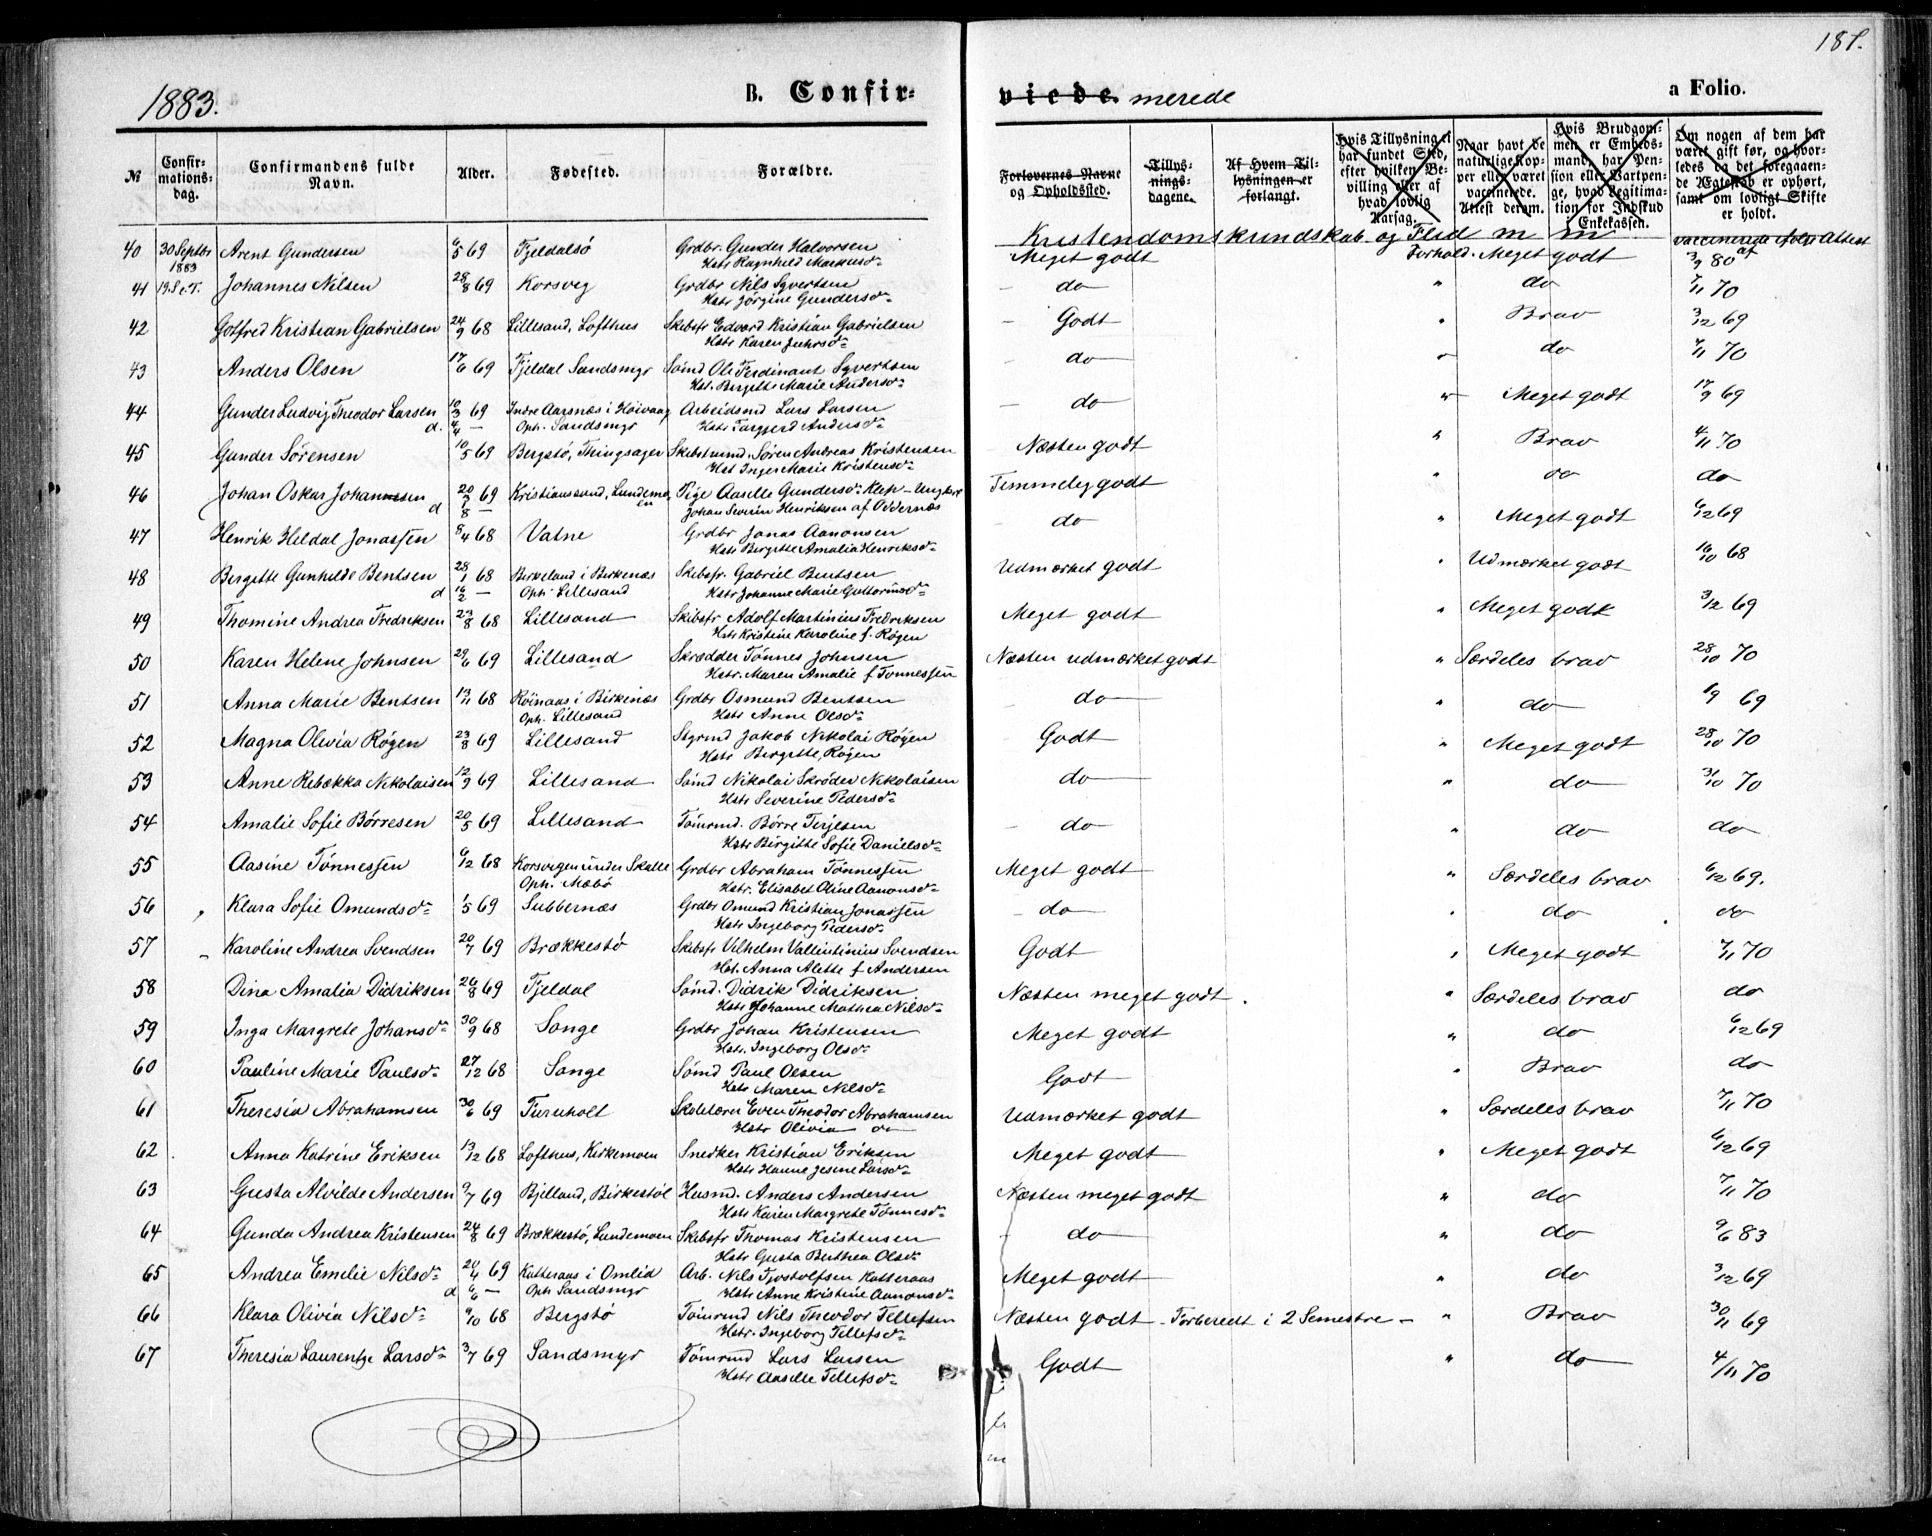 187.
1883.
B. Confir-
viede. merede
a Folio.
№
Confirmationsdag.
Confirmandens fulde Navn.
Alder.
Fødested.
Forældre.
Forlovernes Navne og Opholdssted.
Tillysningsdagene.
Af Hvem Tillysningen er forlangt.
Hvis Tillysning ei har fundet Sted, efter hvilken Bevilling eller af hvad lovlig Aarsag.
Naar havt de naturlige Kopper eller været vaccinerede. Attest derom.
Hvis Brudgommen er Embedsmand, har Pension eller Vartpenge, hvad Legitimation for Indskud Enkekassen.
Om nogen af dem har været gift før, og hvorledes og det foregaaende Ægteskab er ophørt, samt om lovligt Skifte er holdt.
Kristendomskundskab og Flid m m vaccinerede ifølge Attest af
40 30 Septbr 1883 Arent Gundersen 6/5 69 Fjeldalsø Grdbr. Gunder Halvorsen Meget godt Forhold. Meget godt 3/9 80
Hstr Ragnhild Markusdr
41 19. S. e. T. Johannes Nilsen 28/8 69 Korsvig Grdbr Nils Syvertsen – do – " do 7/11 70
Hstr Jørgine Gundersdr
42 Gotfred Kristian Gabrielsen 24/9 68 Lillesand, Lofthus Skibsfr Edvard Kristian Gabrielsen – Godt " Brav 3/12 69
Hstr Karen
43 Anders Olsen 17/6 69 Fjeldal Sandsmyr Sømd Ole Ferdinant Syvertsen – do – " do 7/11 70
Hst. Birgitte Marie Andersdr
44 Gunder Ludvig Theodor Larsen 10/3 69 Indre Aarsnæs i Høivaag Arbeidsmd Lars Larsen – do " Meget godt 17/9 69
d. 4/4 – Oph. Sandsmyr Hstr Targjerd Andersdr
45 Gunder Sørensen 10/5 69 Bergstø, Thingsager Skibstmmd. Søren Andreas Kristensen Næsten godt " Brav 4/11 70
Hst Inger Marie Kristensdr
46 Johan Oskar Johannesen 20/7 69 Kristianssand, Lundemoen Pige Aaselle Gundersdr Klep – Ungkarl Temmelig godt " do do
d 7/8 – Johan Severin Henriksen af Oddernæs
47 Henrik Heldal Jonassen 8/4 68 Vatne Grdbr Jonas Aanonsen do " Meget godt 6/12 69
Hstr Birgitte Amalia Henriksdr
48 Bergette Gunhilde Bentsen 28/1 68 Birkeland i Birkenæs Skibsfr. Gabriel Bentsen Udmærket godt " Udmærket godt 16/10 68
d 16/2 – Oph. Lillesand Hstr Johanne Marie Guttormsdr
49 Thomine Andrea Fredriksen 23/8 68 Lillesand Skibsfr Adolf Martinius Fredriksen Meget godt " Meget godt 3/12 69
Hstr Kristine Karoline f. Røgen
50 Karen Helene Johnsen 29/6 69 Lillesand Skrædder Tønnes Johnsen Næsten udmærket godt " Særdeles brav 28/10 70
Hstr. Maren Amalie f Tønnessen
51 Anna Marie Bentsen 13/11 68 Røinaas i Birkenæs Grdbr Osmund Bentsen – do – " do 1/9 69
Oph. Lillesand Hstr Anne Olsdr
52 Magna Olivia Røgen 23/8 69 Lillesand Styrmd Jakob Nikolai Røgen – Godt " Meget godt 28/10 70
Hstr Birgitte Røgen
53 Anne Rebækka Nikolaisen 12/9 69 Lillesand Sømd Nikolai Skrøder Nikolaisen – do " do 31/10 70
Hstr Severine Pedersdr
54 Amalie Sofie Børresen 20/5 69 Lillesand Tømrmd. Børre Terjesen – do " do do
Hstr Birgitte Sofie Danielsdr
55 Aasine Tønnessen 6/12 68 Korsvigen under Skalle Grdbr Abraham Tønnessen Meget godt " Særdeles brav 6/12 69.
Oph. Mæbø Hstr. Elisabet Oline Aanonsdr
56 Klara Sofie Omundsdr 1/5 69 Subbernæs Grdbr Omund Kristian Jonassen – do – do do
Hstr Ingeborg Pedersdr
57 Karoline Andrea Svendsen 20/7 69 Brækkestø Skibsfr Vilhelm Vallentinius Svendsen Godt " Meget godt 7/11 70
Hst. Anna Alette f Andersen
58 Dina Amalia Didriksen 26/8 69 Fjeldal Sømd. Didrik Didriksen Næsten meget godt. " Særdeles brav do
Hstr Johanne Mathea Nilsdr
59 Inga Margrete Johansdr 30/9 68 Songe Grdbr Johan Kristensen Meget godt " do 6/12 69
Hstr. Ingeborg Olsdr
60 Pauline Marie Paulsdr 27/12 68 Songe Sømd Paul Olsen Godt " Brav do
Hstr Maren Nilsdr
61 Theresia Abrahamsen 30/6 69 Furuholt Skolelærer Even Theodor Abrahamsen Udmærket godt " Særdeles brav 7/11 70
Hstr Olivia do
62 Anna Katrine Eriksen 13/12 68 Lofthus, Kirkemoen Snedker Kristian Eriksen Meget godt " Meget godt 6/12 69
Hstr Hanne Jesine Larsdr
63 Gusta Alvilde Andersen 9/7 69 Bjelland, Birkestøl Husmd. Anders Andersen Næsten meget godt " do 7/11 70
Hstr Karen Margrete Tønnesdr
64 Gunda Andrea Kristensen 24/8 69 Brækkestø, Lundemoen Skibsfr Thomas Kristensen – do – " do 9/6 83
Hstr Gusta Berthea Olsdr
65 Andrea Emilie Nilsdr 20/4 69 Katteraas i Omlid Arb. Nils Tjostolfsen Katteraas Meget godt " do 3/12 69
d 6/6 – Oph Sandsmyr Hstr Anne Kristine Aanonsdr
66 Klara Olivia Nilsdr 9/10 68 Bergstø Tømrmd Nils Theodor Tellefsen Næsten godt – Forberedt i 2 Semestre – " Brav 30/11 69
Hstr. Ingeborg Tellefsdr
67 Theresia Laurentze Larsdr 3/7 69 Sandsmyr Tømrmd Lars Larsen Godt " do 4/11 70
Hstr Aaselle Tellefsdr